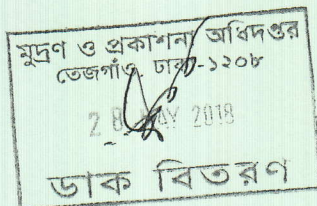 মুদ্রণ ও প্রকাশনা অধিদপ্তর
তেজগাঁও, ঢাকা-১২০৮
28 MAY 2018
ডাক বিতরণ